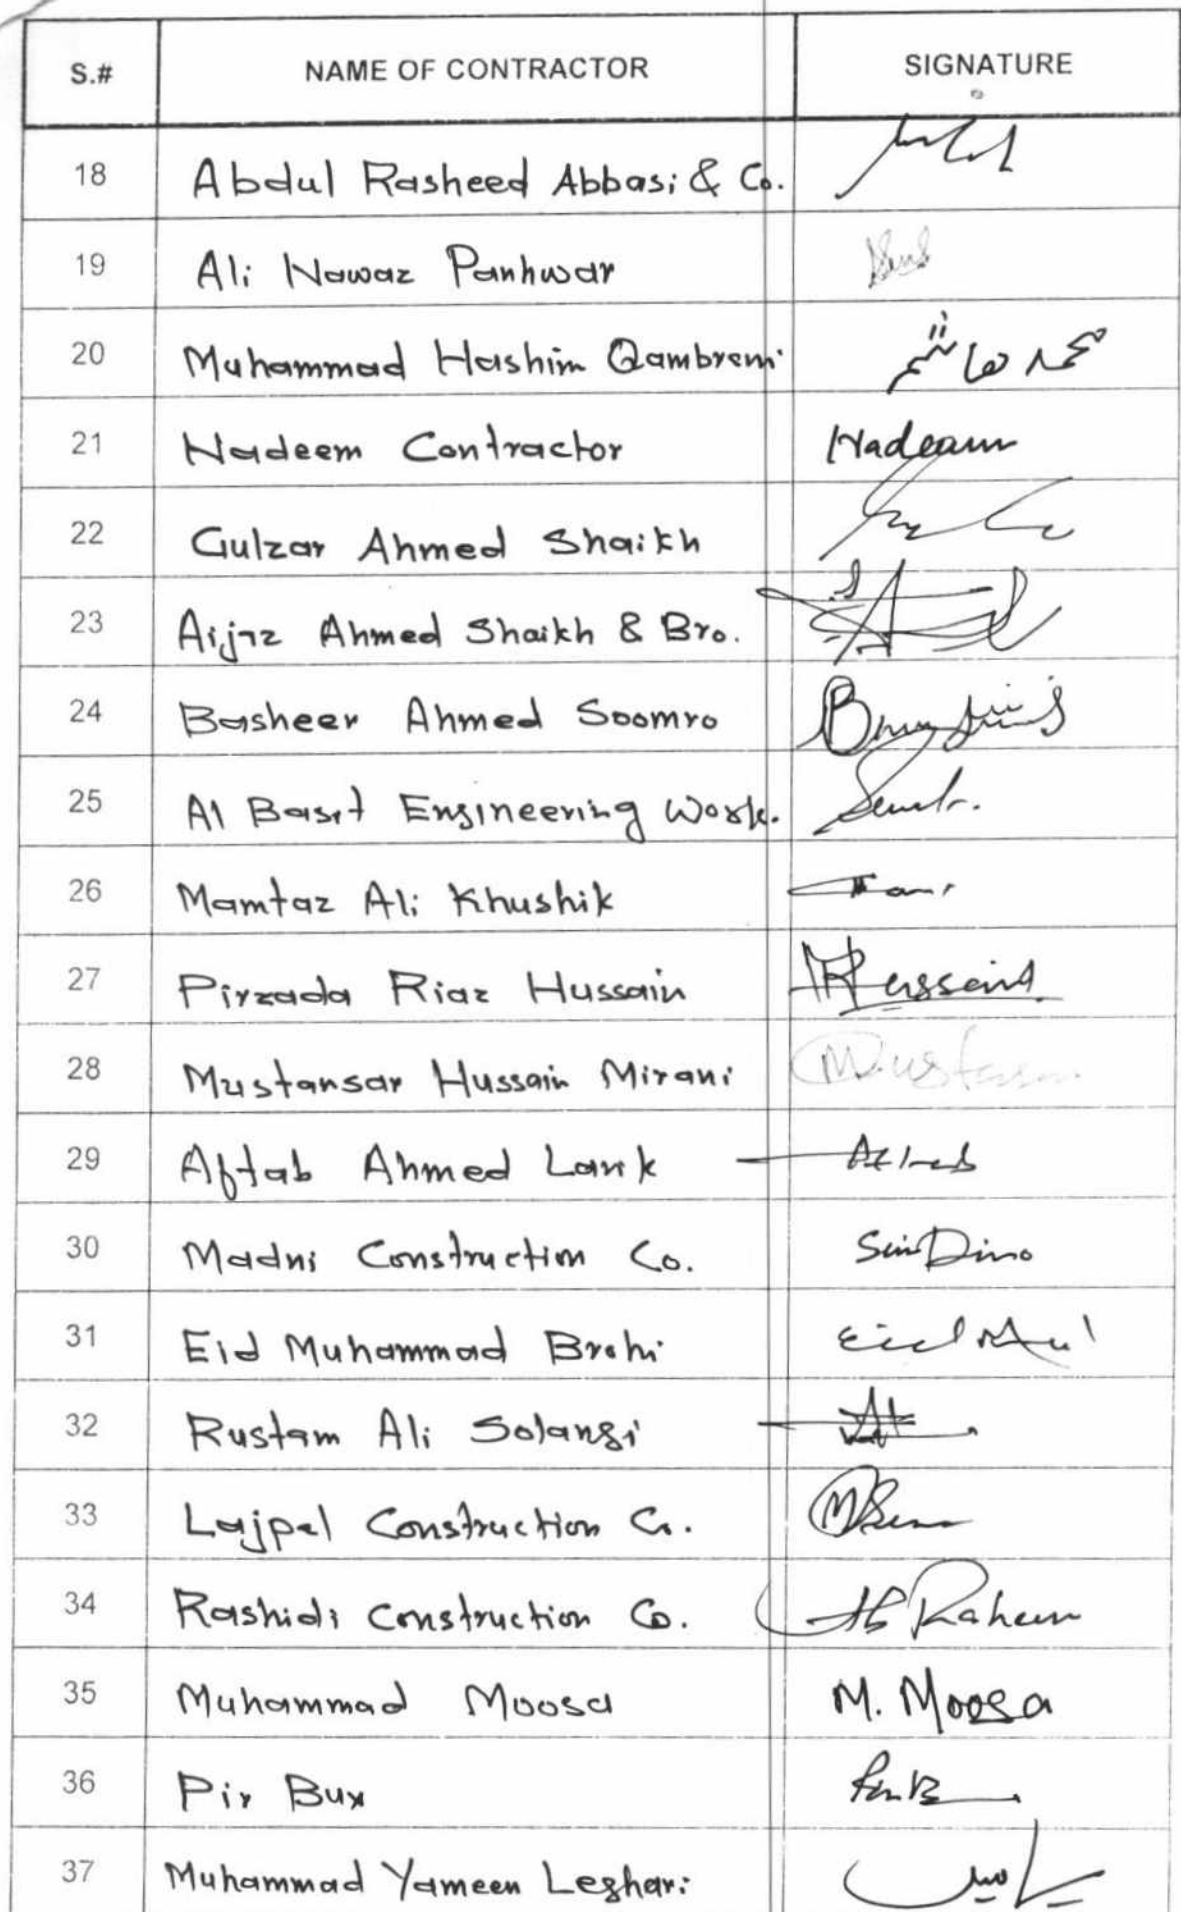 S.# NAME OF CONTRACTOR SIGNATURE
18 Abdul Rasheed Abbasi & Co.
19 Ali Nawaz Panhwar
20 Muhammad Hashim Qambrani محمد هاشم
21 Nadeem Contractor Nadeem
22 Gulzar Ahmed Shaikh
23 Aijaz Ahmed Shaikh & Bro.
24 Basheer Ahmed Soomro
25 Al Basit Engineering Work.
26 Mamtaz Ali Khushik
27 Pirzada Riaz Hussain
28 Mustansar Hussain Mirani
29 Aftab Ahmed Lank
30 Madni Construction Co.
31 Eid Muhammad Brohi
32 Rustam Ali Solangi
33 Lajpal Construction Co.
34 Rashidi Construction Co.
35 Muhammad Moosa M. Moosa
36 Pir Bux
37 Muhammad Yameen Leghari